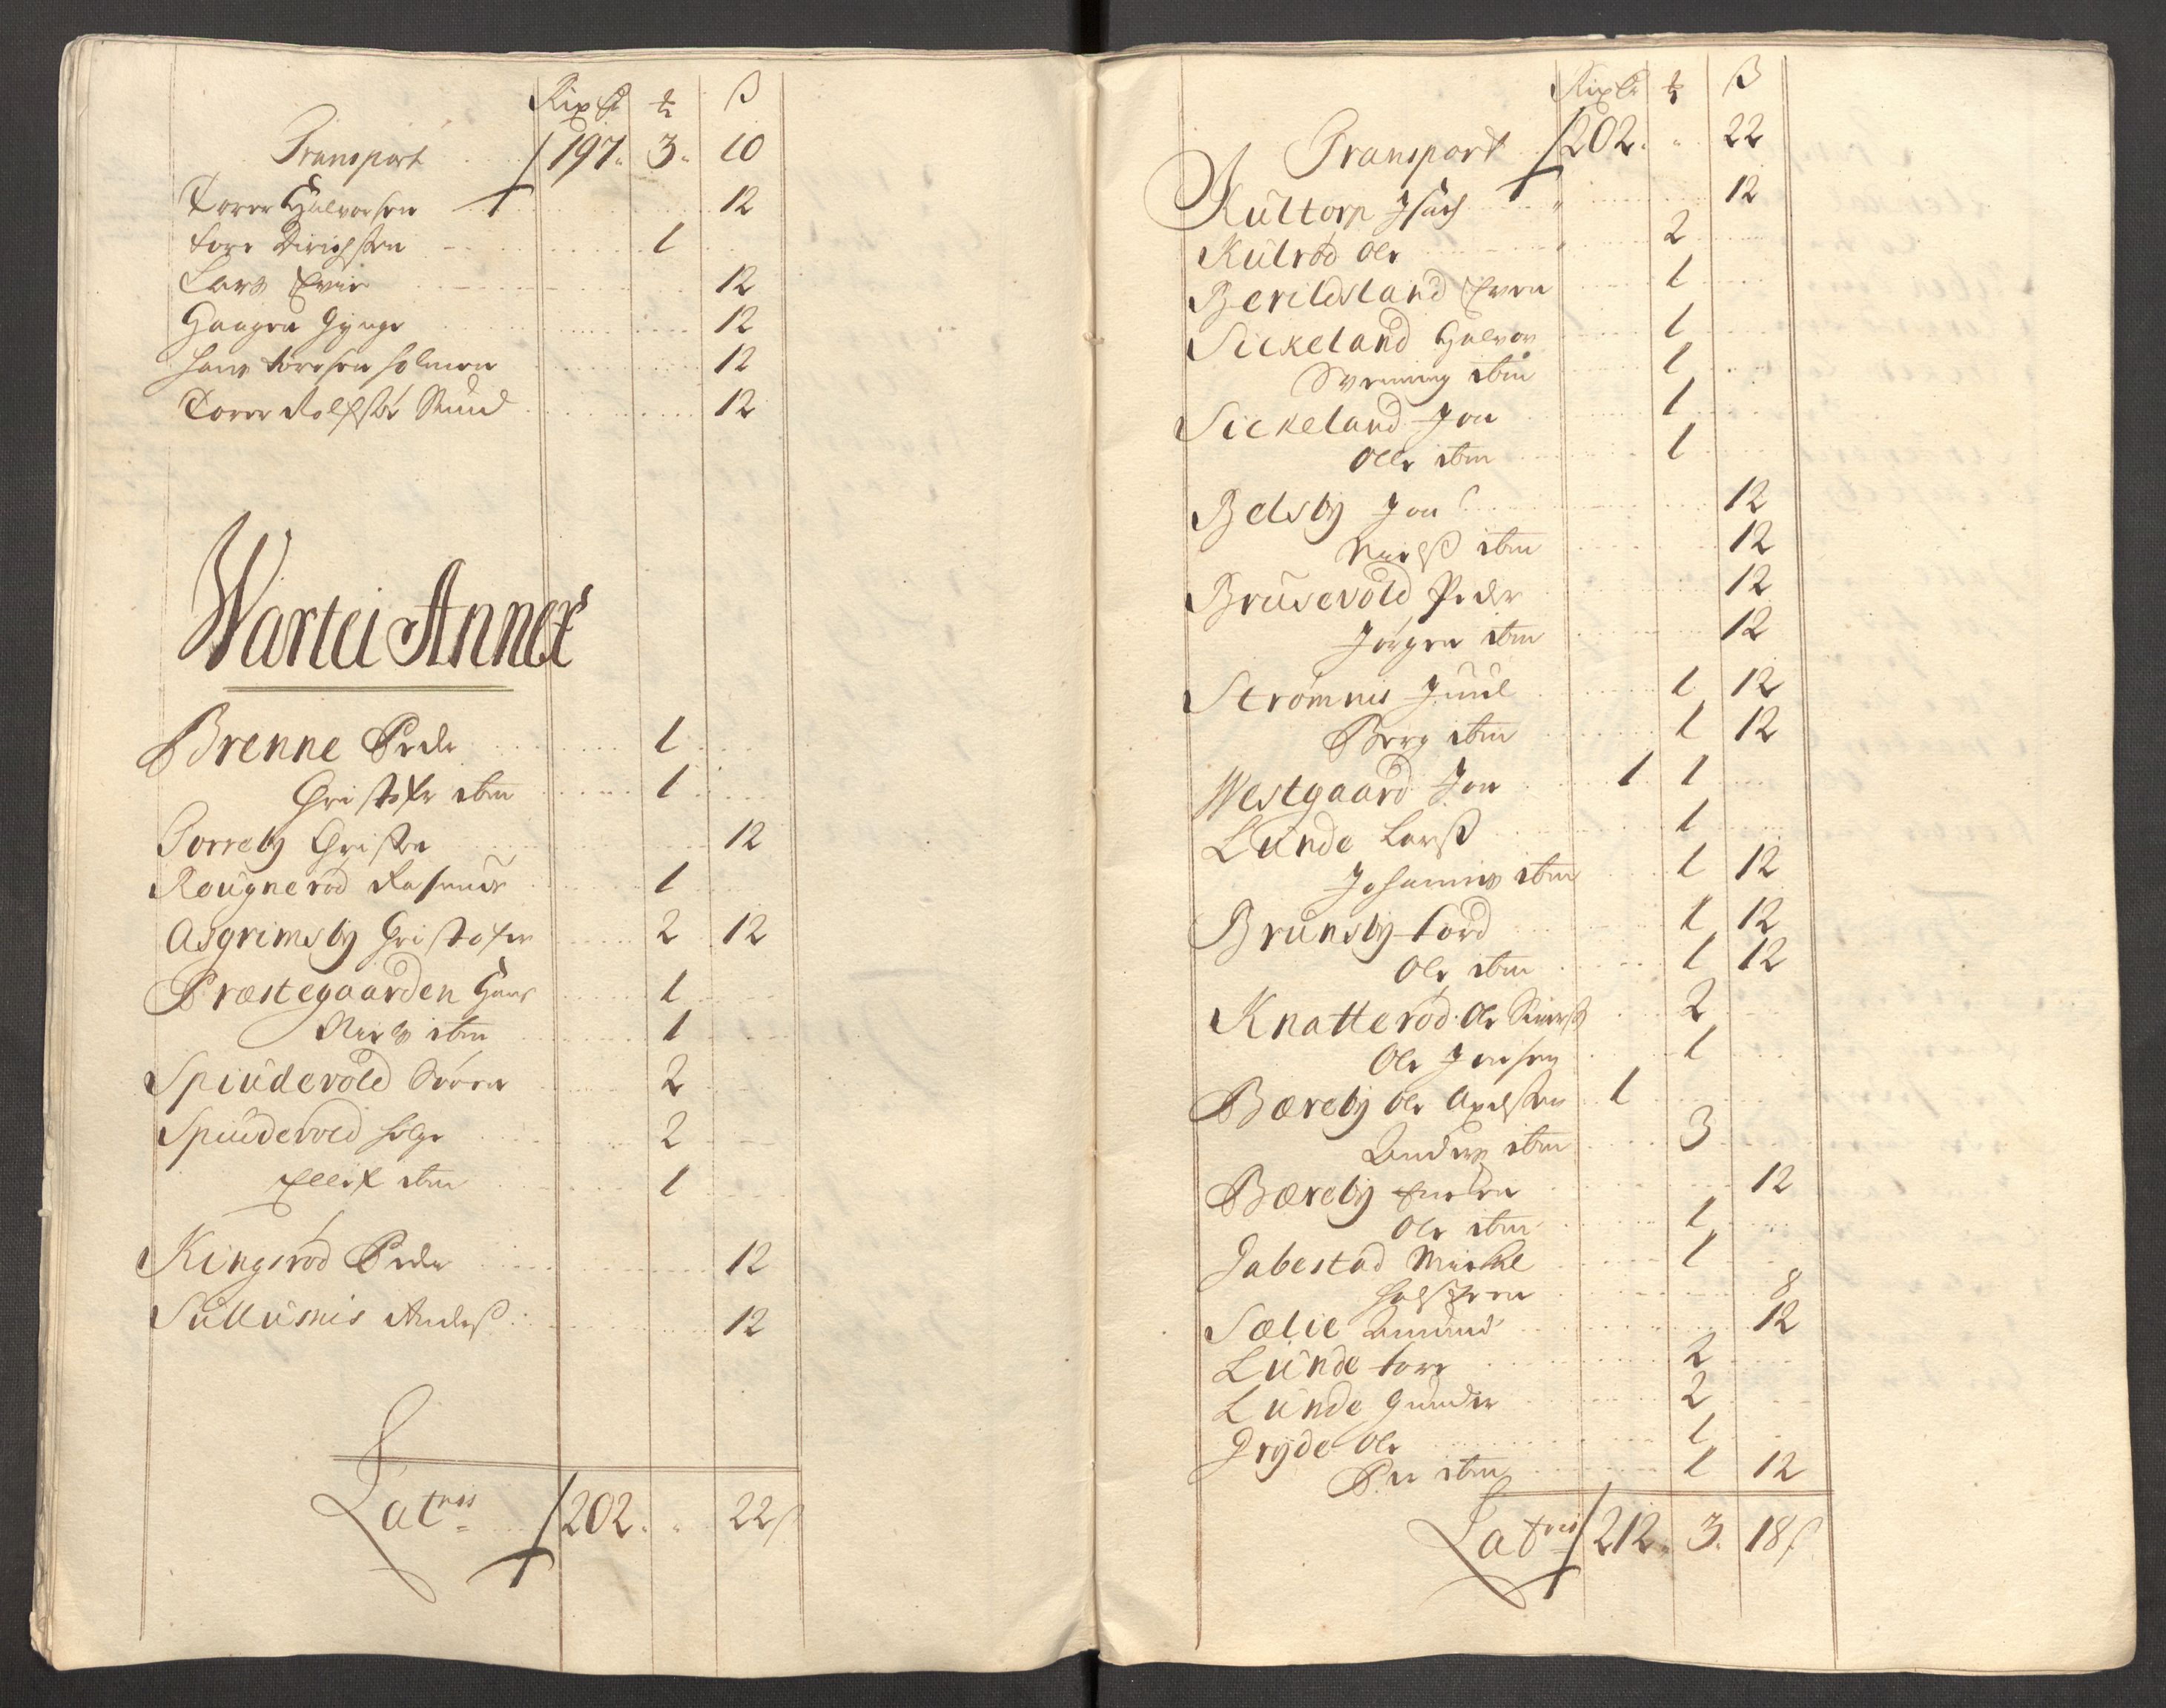 Rixdr ꝝ ß
Transport 197. 3. 10
Torer Halvorsen 12
Tore Dirichsen 1
Lars Evie 12
Haagen Gynge 12
Hans Torresen Holmen 12
Torer Rolfsør Rund 12
Wartei Annex
Brenne Peder 1
Christofr ibm 1
Torreby Christen 12
Rougnerød Rasmus 1
Asgrimsby Christofer 2 12
Præstegaarden Hans 1
Niels ibm 1
Spiudevold Sören 2
Spiudevold Helge 2
Ellef ibm 1
Kingsrød Peder 12
Sullusnis Anders 12
Latris 202. „ 22 ß
Rixdr ꝝ ß
Transport 202. „ 22
Kultorp Isach 12
Kulrød Ole 2
Berildsland Even 1
Sickeland Halvor 1
Svenning ibm 1
Sickeland Jon 1
Olle ibm 1
Belsby Jon 12
Nielß ibm 12
Brusevold Peder 12
Jørgen ibm 12
Strømnis Juul 1 12
Borg ibm 1 12
Westgaard Jon 1 1
Lunde Larß 1
Johannis ibm 1 12
Brunsby Tord 1 12
Ole ibm 1 12
Knatterød Ole 2
Ole Jensen 1
Bæreby Ole Axelsen 1
Anders ibm 3
Bæreby 12
Ole ibm 1
Gabestad Mickel 1
Halfven 8
Sælie Amund 12
Lunde Tore 2
Lunde Gunder 2
Gryde Ole 1
Per ibm 1 12
Latris 212. 3. 18 ß